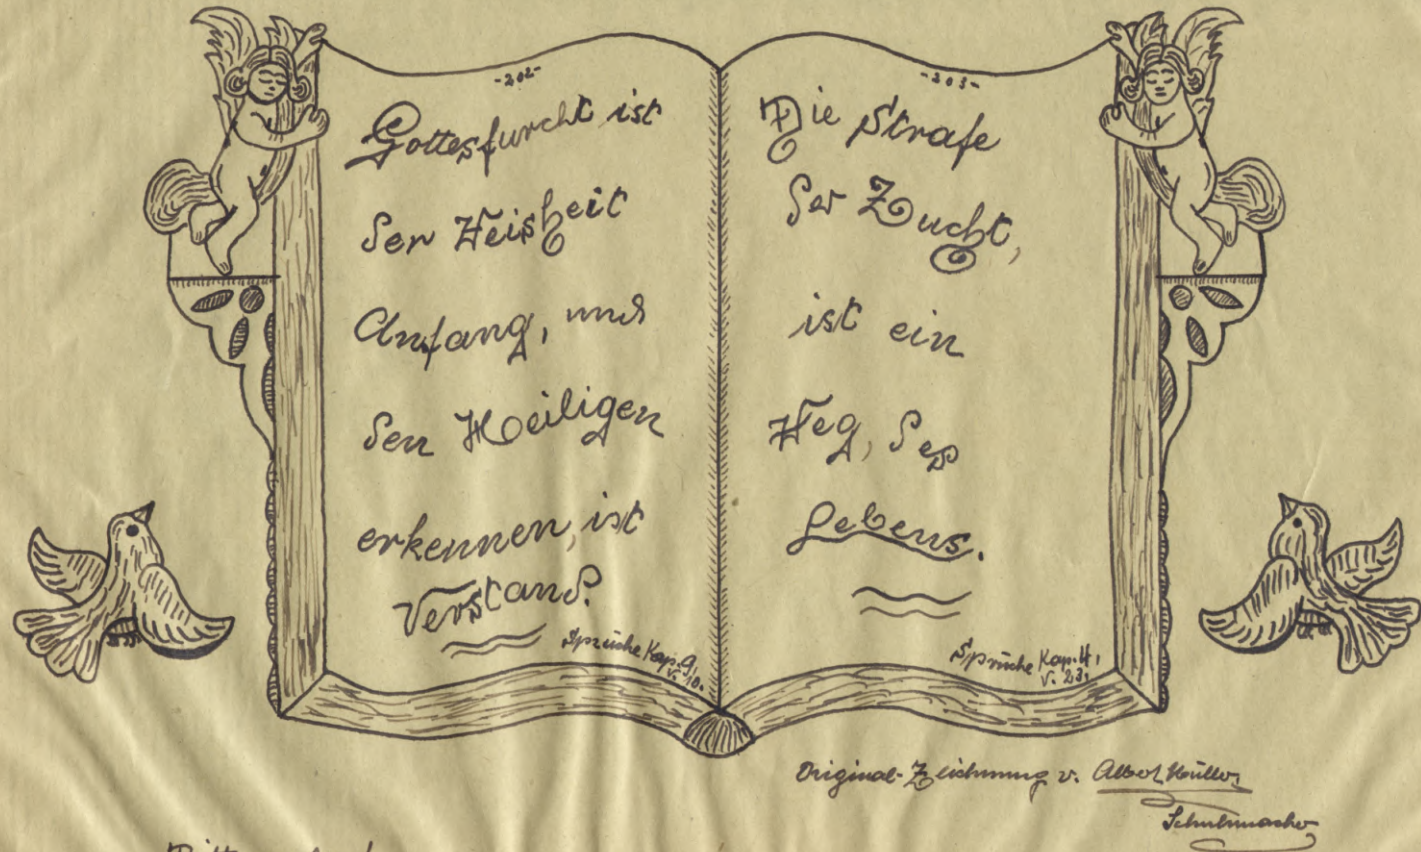 -202-
Gottesfurcht ist
der Weisheit
Anfang, und
den Heiligen
erkennen, ist
Verstand.
Sprüche Kap. 9,
V. 10.
-203-
Die Strafe
der Zucht,
ist ein
Weg, des
Lebens.
Sprüche Kap. 4,
V. 23.
Original-Zeichnung v. Albert Müller,
Schuhmacher